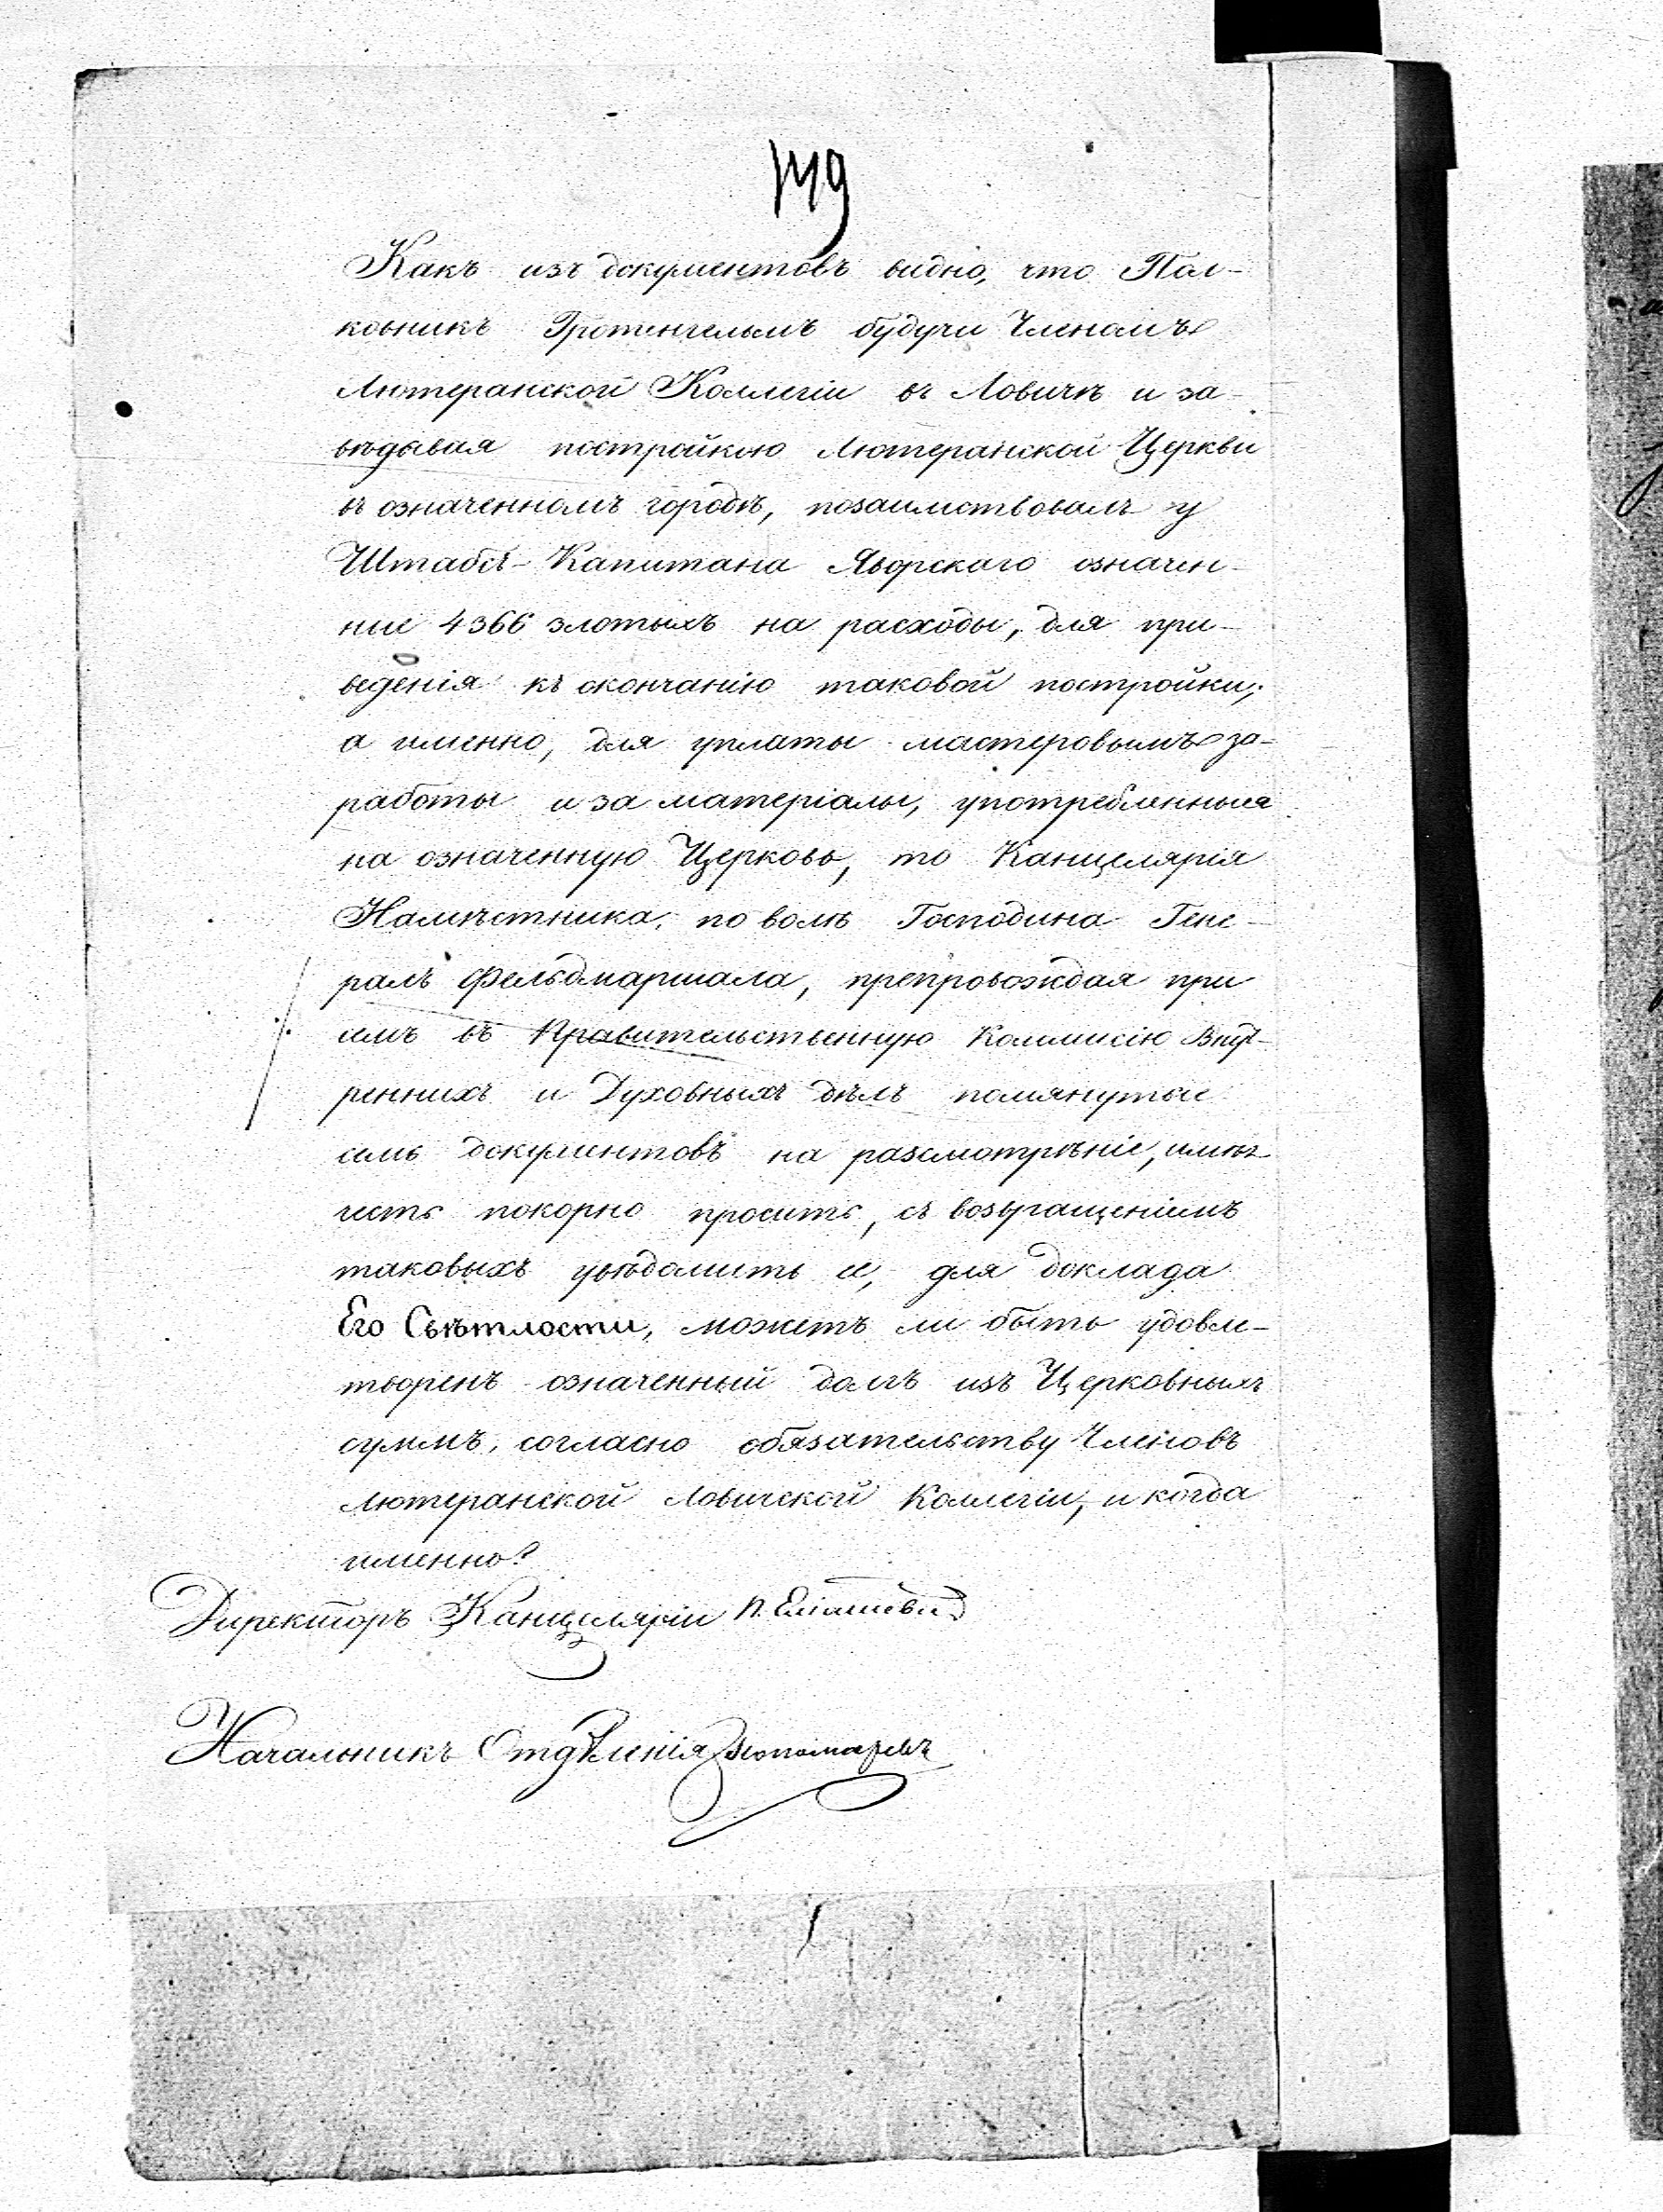 149
Какъ изъ документовъ видно, что Пол-
ковникъ Гротенгельмъ будучи Членомъ
Лютеранской Коллегіи въ Ловичѣ и за-
вѣдывая постройкою Лютеранской Церкви
въ означенномъ городѣ, позаимствовалъ у
Штабсъ-Капитана Яворскаго означен-
ные 4366 злотыхъ на расходы, для при-
веденія къ окончанію таковой постройки;
а именно, для уплаты мастеровымъ за
работы и за матеріалы, употребленныя
на означенную Церковь, то Канцелярія
Намѣстника, по волѣ Господина Гене-
ралъ Фельдмаршала, препровождая при
семъ въ Правительственную Коммисію Внут-
реннихъ и Духовныхъ дѣлъ помянутые
семь документовъ на разсмотрѣніе, имѣетъ
честь покорно просить, съ возвращеніемъ
таковыхъ увѣдомить ее, для доклада
Его Свѣтлости, можетъ ли быть удовле-
творенъ означенный долгъ изъ Церковныхъ
суммъ, согласно обязательству Членовъ
Лютеранской Ловичской Коллегіи, и когда
именно?
Директоръ Канцеляріи
Начальникъ Отдѣленія Пономаревъ